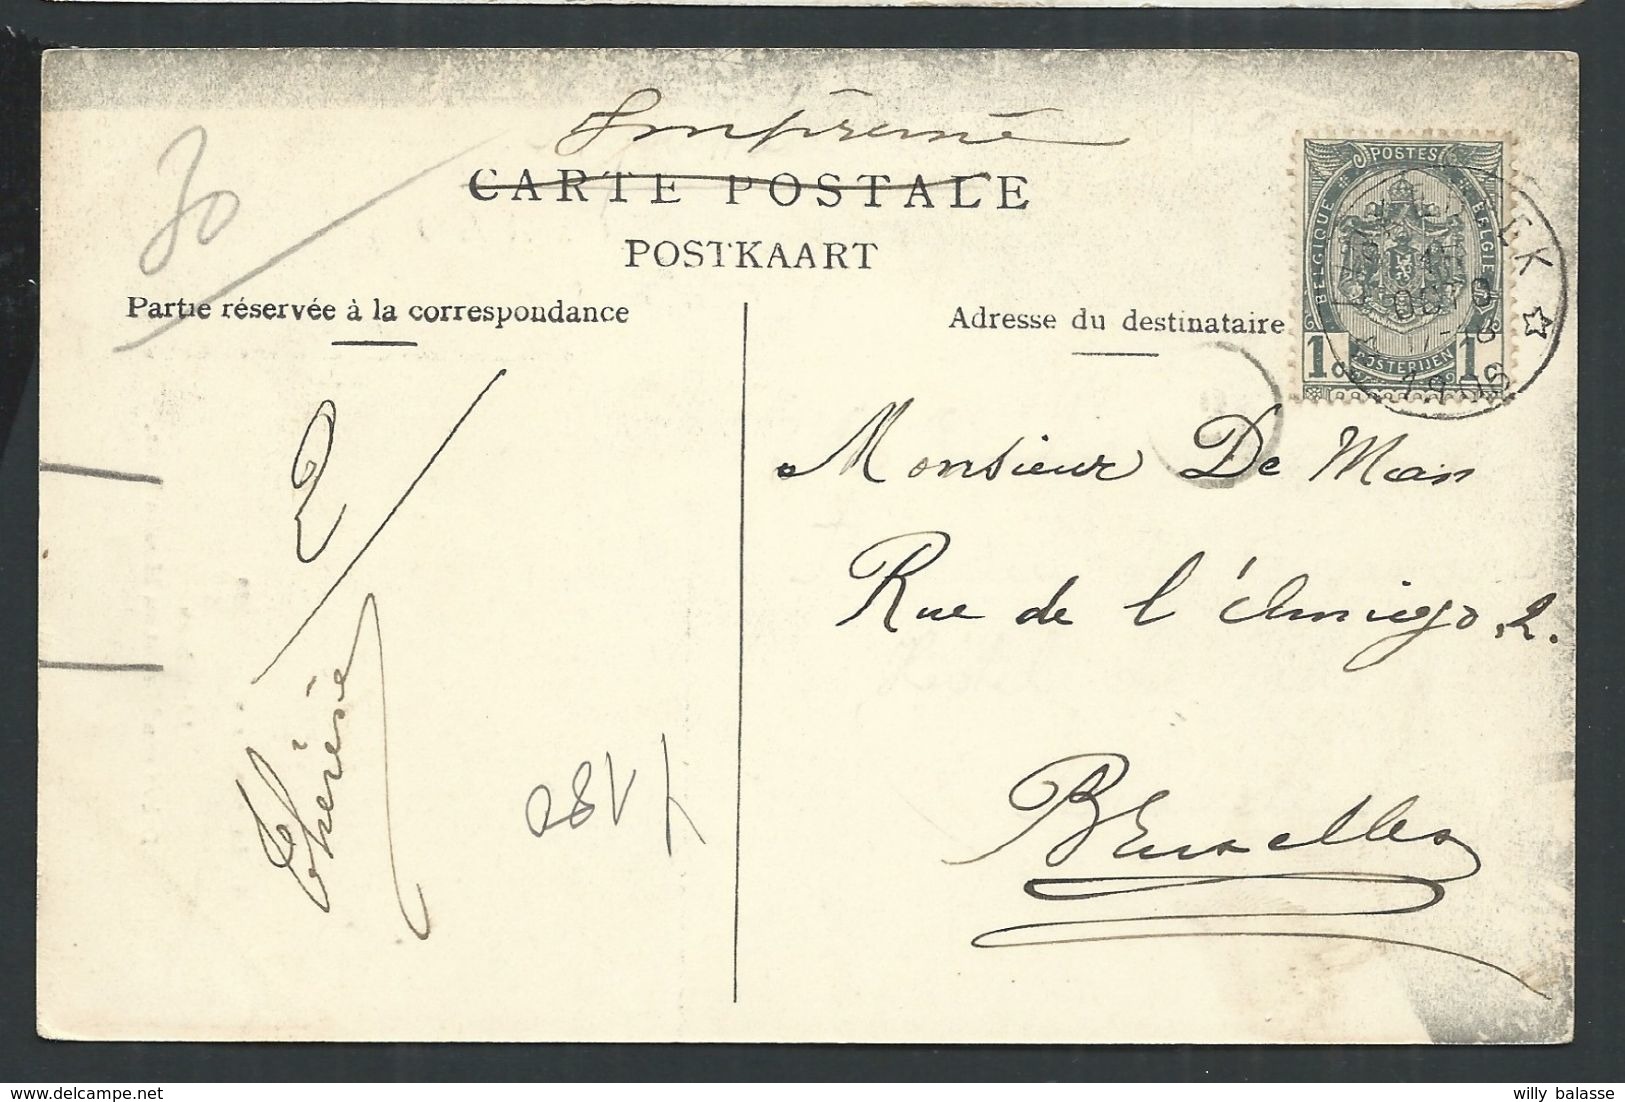 Imprimé
CARTE POSTALE
POSTKAART
Partie réservée à la correspondance
Adresse du destinataire
POSTES
BELGIQUE
BELGIE
POSTERIJEN
1c 1c
EK
1906
30
2
Thérèse
Monsieur De Man
Rue de l'Amigo, 2.
Bruxelles
willy balasse